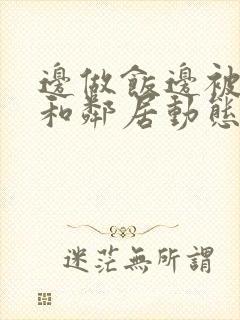 邊做飯邊被
和鄰居動態
迷茫無所謂